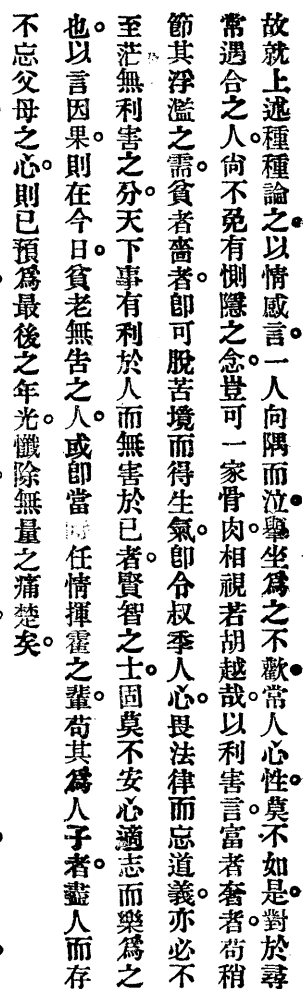 故就上述種種論之以情感言。一人向隅而泣。舉坐爲之不歡。常人心性。莫不如是。對於尋
常遇合之人。尙不免有惻隱之念。豈可一家骨肉。相視若胡越哉。以利害言。富者奢者。苟稍
節其浮濫之需。貧者嗇者。卽可脫苦境而得生氣。卽令叔季人心。畏法律而忘道義。亦必不
至茫無利害之分。天下事有利於人而無害於己者。賢智之士。固莫不安心適志而樂爲之
也。以言因果。則在今日。貧老無告之人。或卽當時任情揮霍之輩。苟其爲人子者。盡人而存
不忘父母之心。則已預爲最後之年光。懺除無量之痛楚矣。